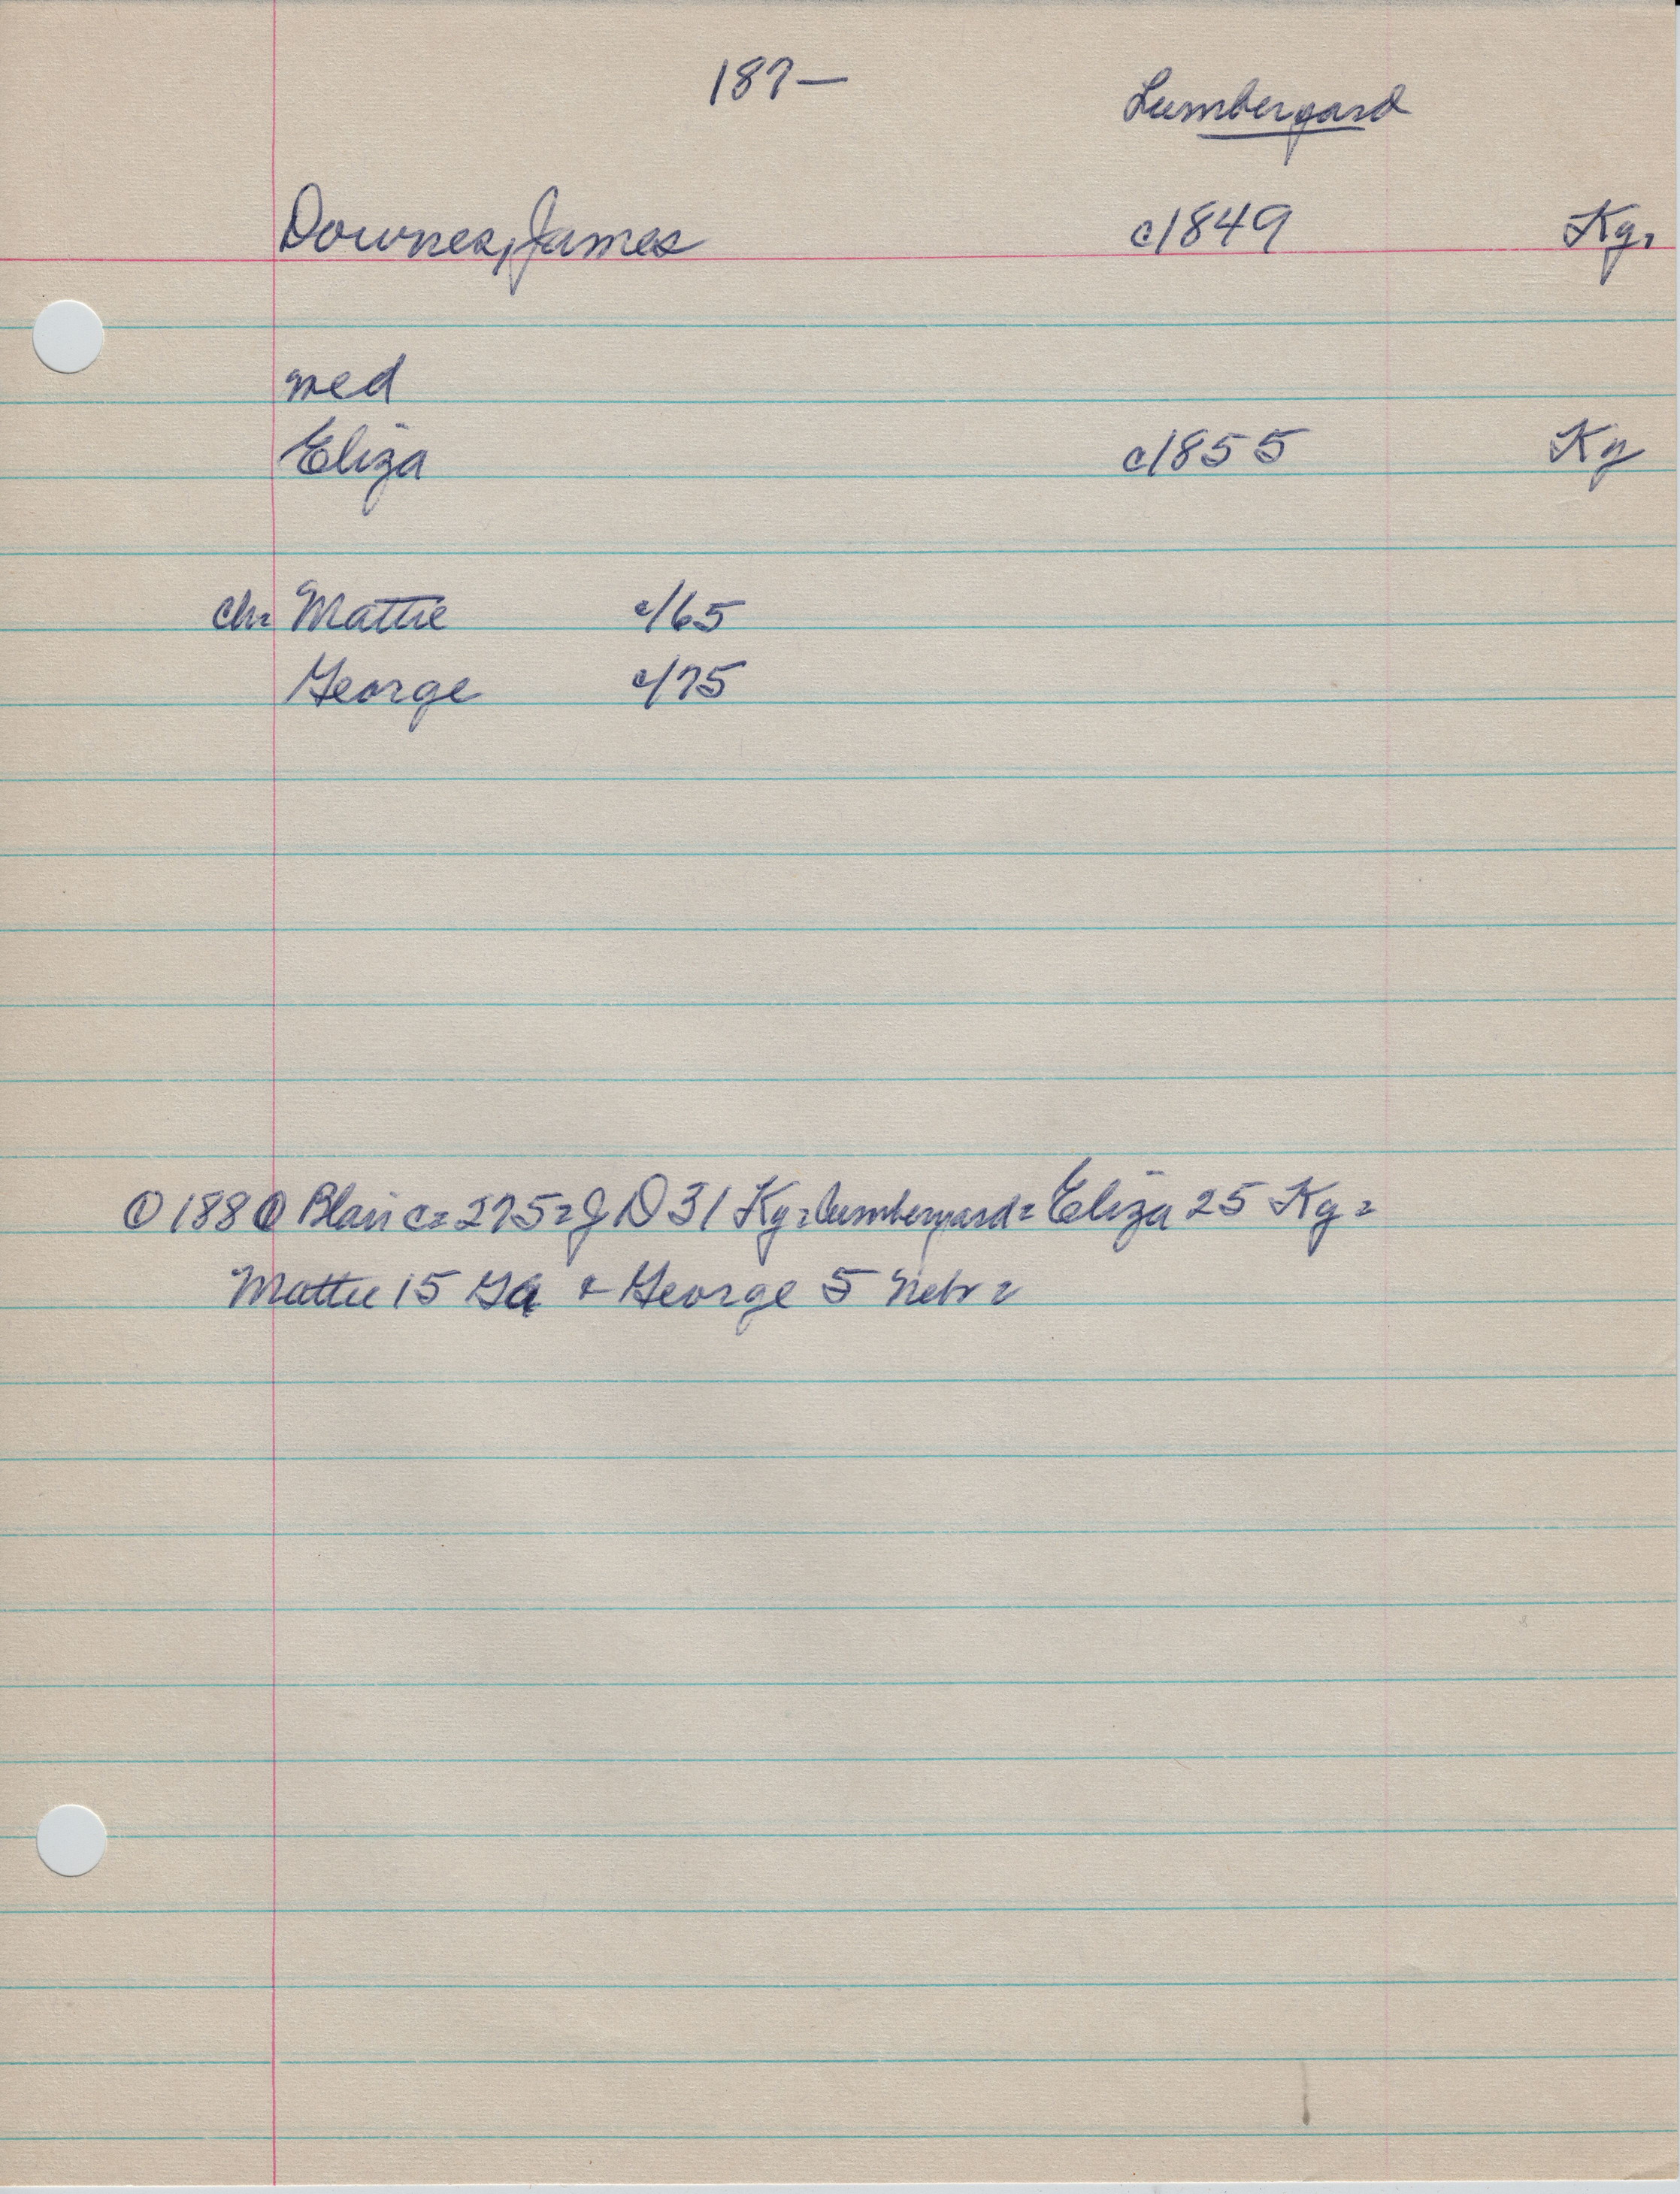 187—
Lumberyard
Downes, James c1849 Ky.
med
Eliza c1855 Ky
ch= Mattie c/65
George c/75
① 1880 Blair c= 275= J D 31 Ky= lumberyard= Eliza 25 Ky=
Mattie 15 Ga & George 5 Nebr=